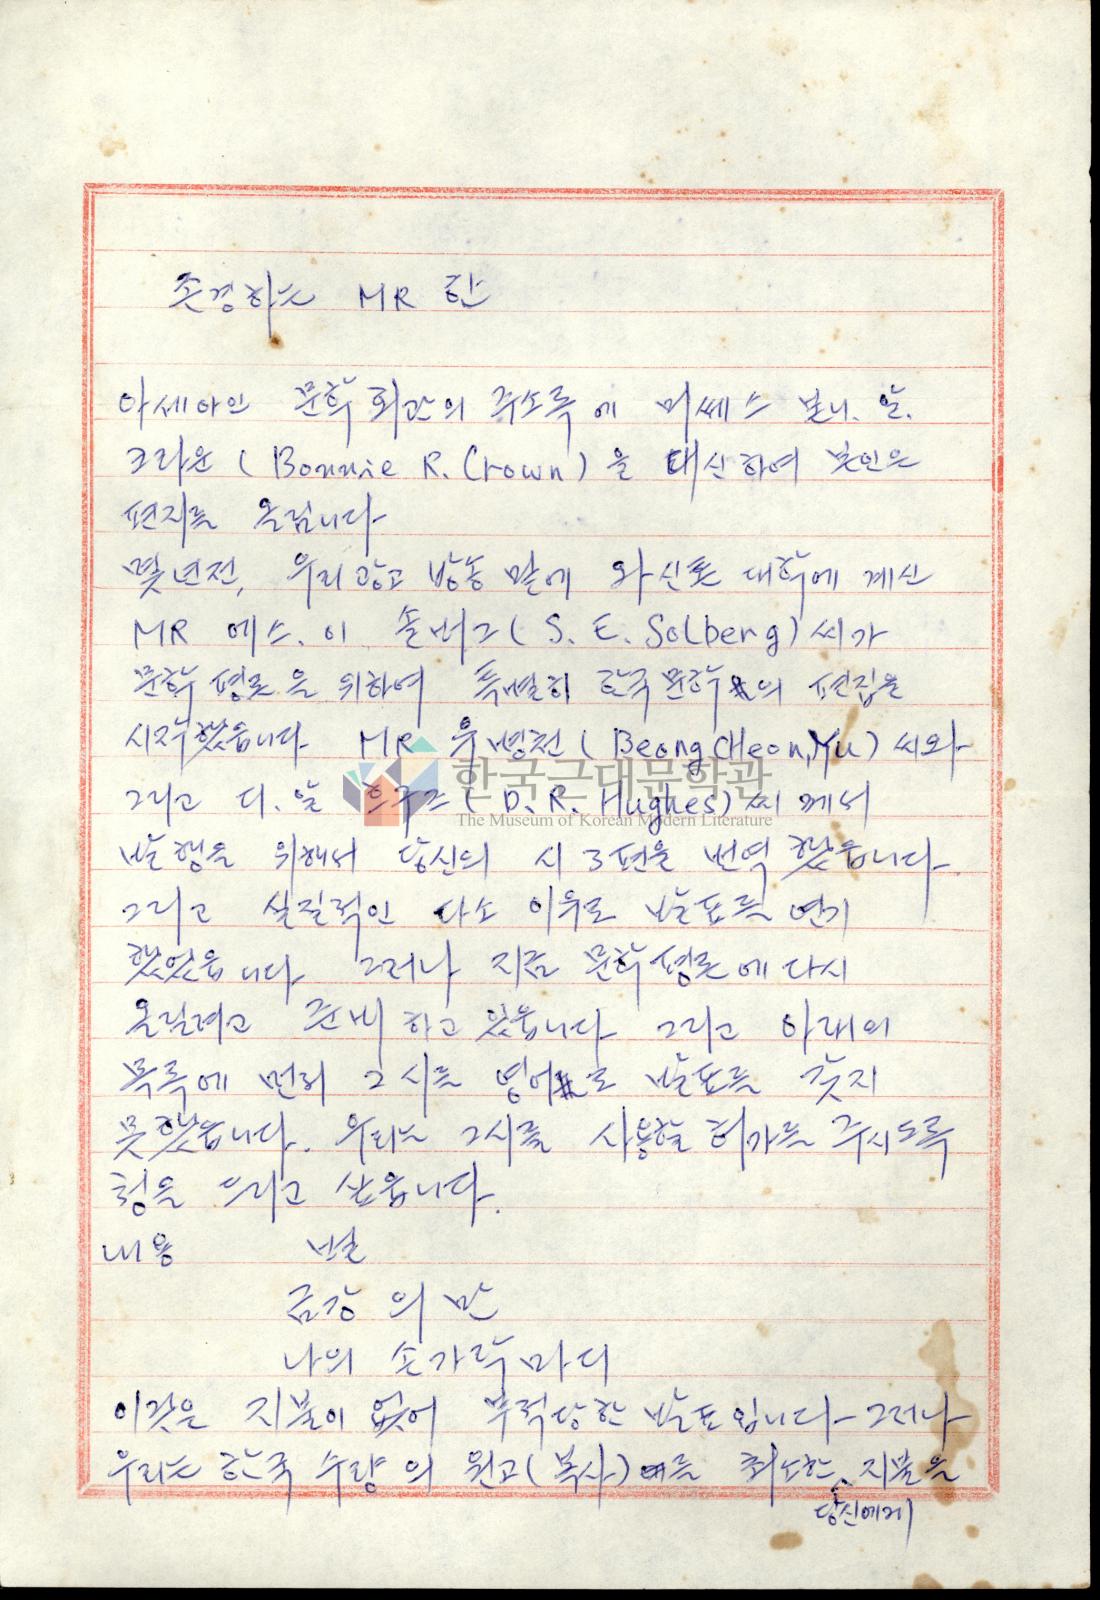 존경하는 MR 한
아세아인 문학회관의 주소록에 미쎄스 보니. 알.
크라운 (Bonnie R. Crown) 을 대신하여 본인은
편지를 올립니다
몇년전, 우리 광고 방송 말에 와신톤 대학에 계신
MR 에스. 이 솔버그 (S. E. Solberg) 씨가
문학평론을 위하여 특별히 한국문학의 편집을
시작했읍니다 MR 유병천 (Beong CHeon, Yu) 씨와
그리고 디. 알 휴우즈 (D. R. Hughes) 씨께서
발행을 위해서 당신의 시 3편을 번역했읍니다.
그리고 실질적인 다소 이유로 발표를 연기
했었읍니다. 그러나 지금 문학평론에 다시
올릴려고 준비하고 있읍니다 그리고 아래의
목록에 먼저 그 시를 영어로 발표를 갖지
못했읍니다. 우리는 그시를 사용할 허가를 주시도록
청을 드리고 싶읍니다.
내용 별
금강의 만
나의 손가락마디
이것은 지불이 없어 부적당한 발표입니다 그러나
우리는 한국 수량의 원고 (복사) 를 최소한 지불을
당신에게
한국근대문학관
The Museum of Korean Modern Literature